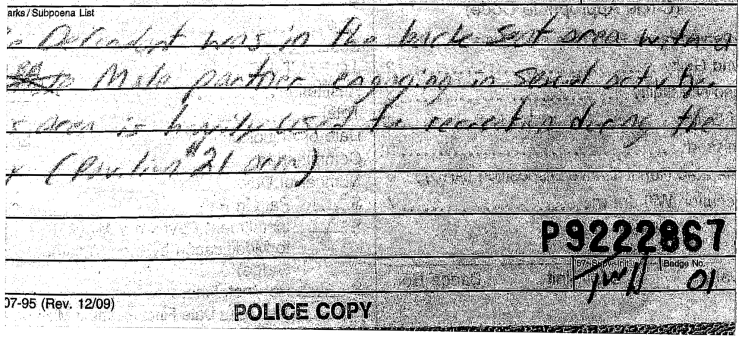 arks / Subpoena List
Defendent was in the back seat area
Male partner engaging in sexual activity.
area is highly used for recreation during the
(Pavilion #21 area)
P9222867
Badge No.
01
07-95 (Rev. 12/09)
POLICE COPY